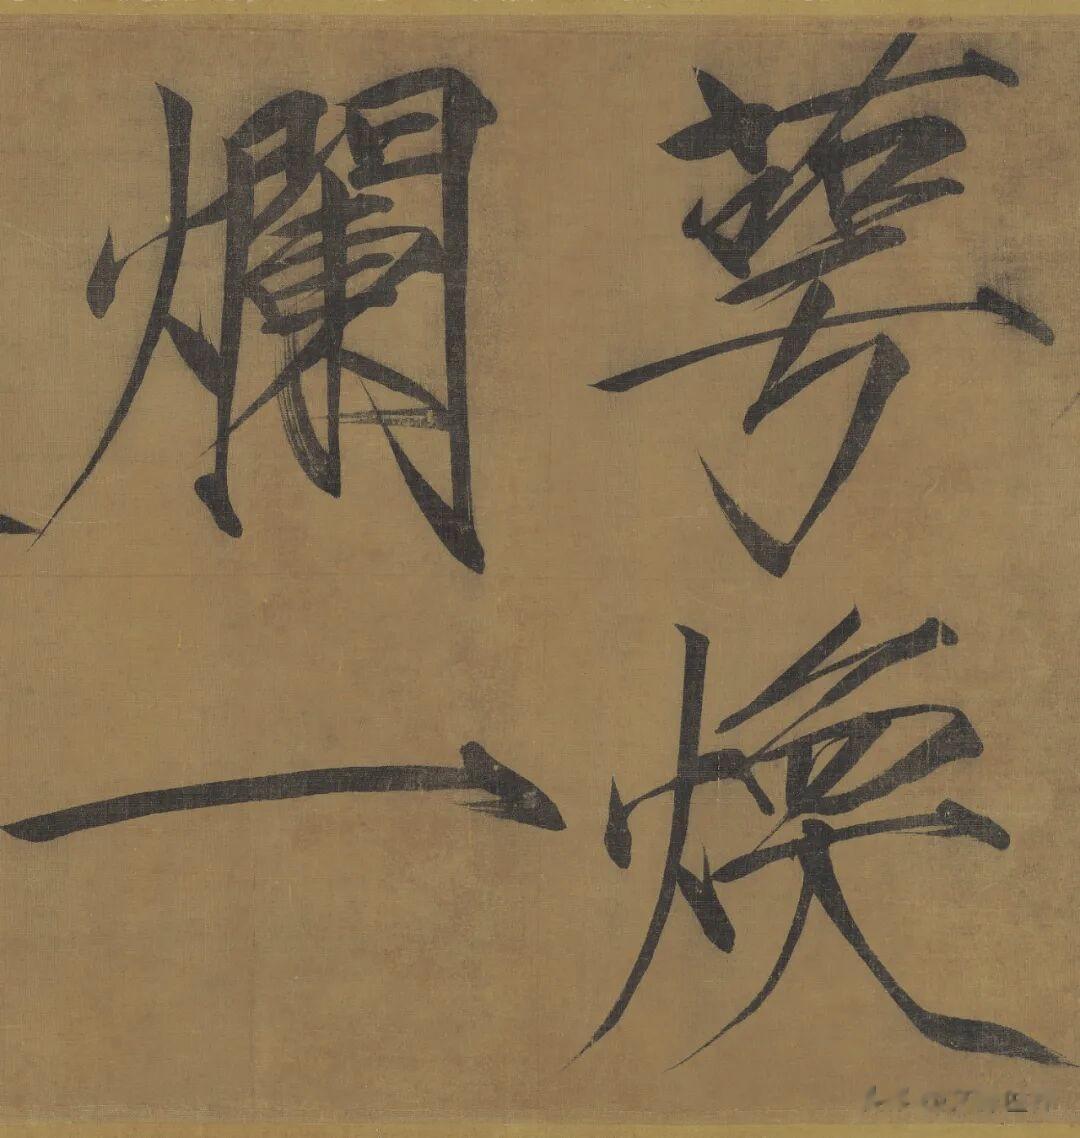 萼煥
爛一